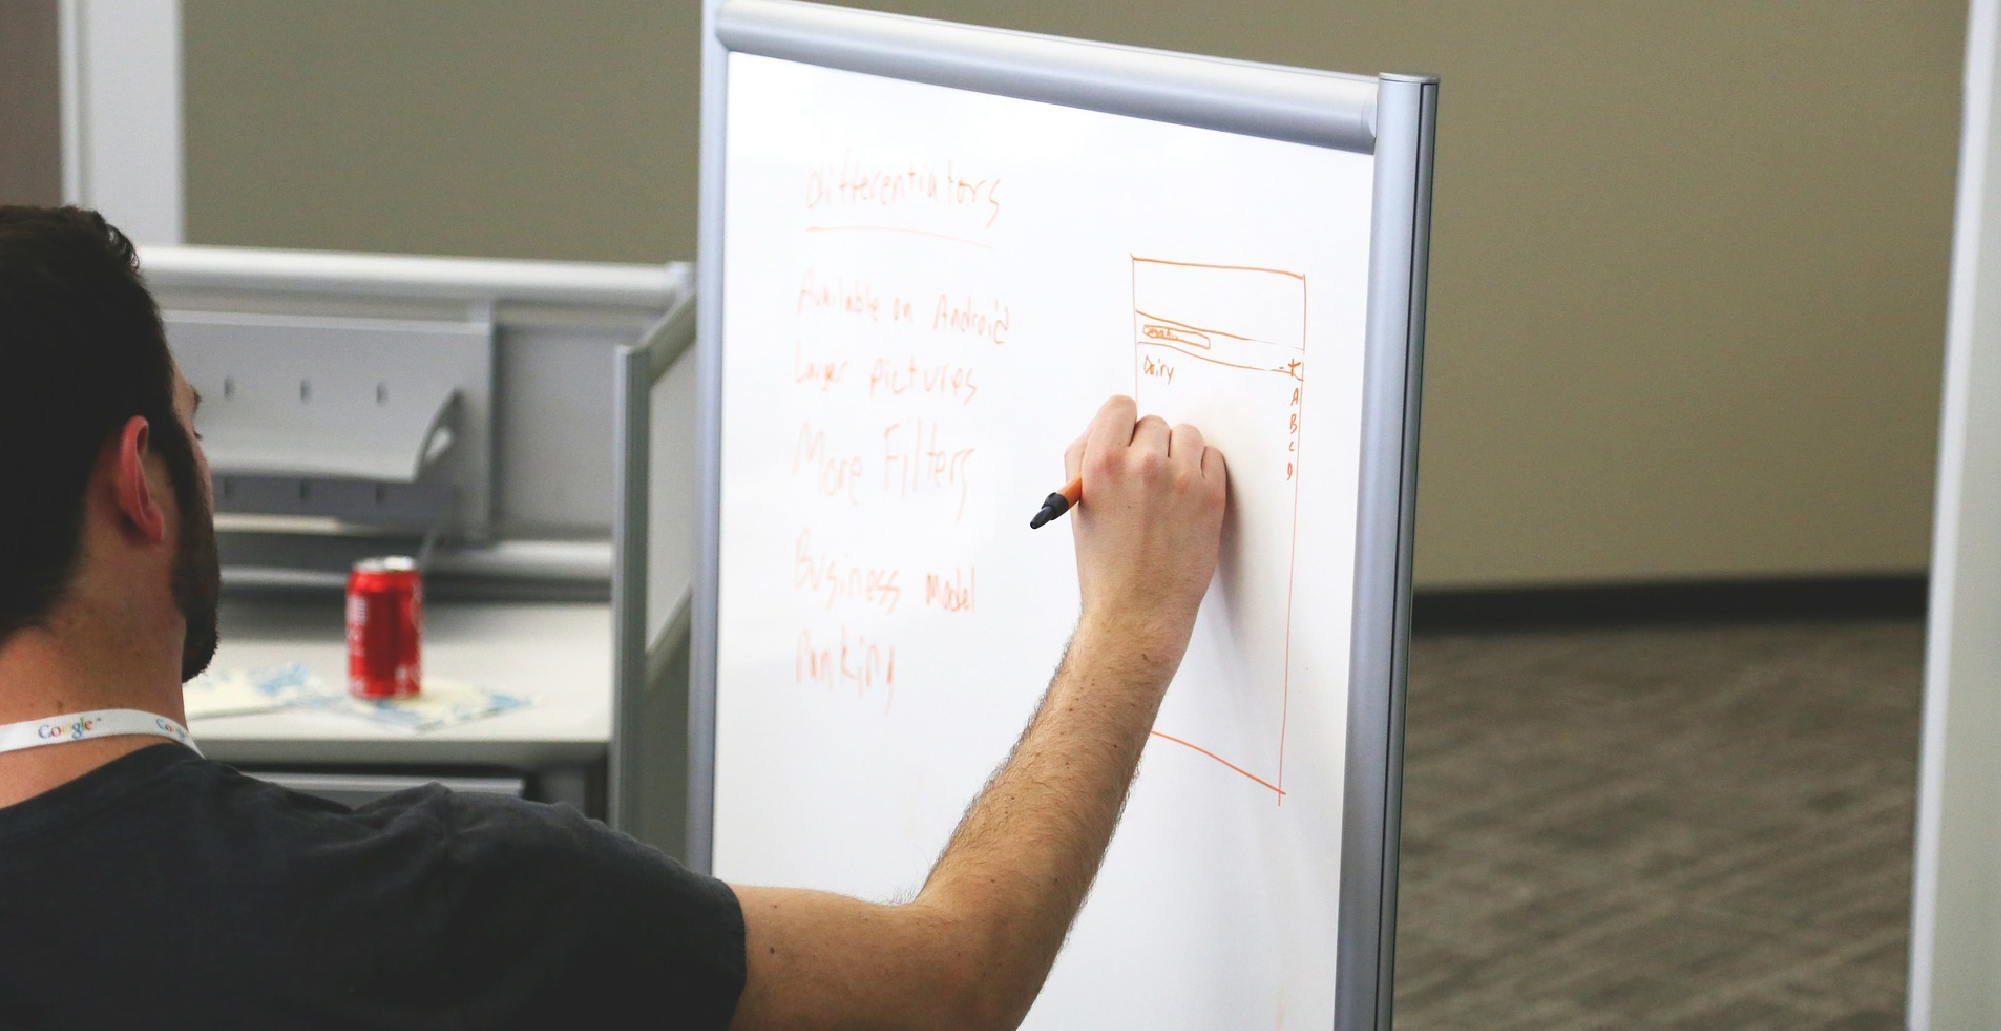 Differentiators
Available on Android
Larger pictures
More Filters
Business Model
Ranking
Dairy
A
B
C
D
Google